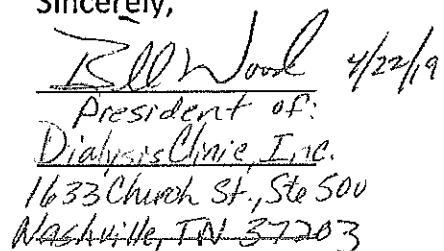 Sincerely,
Bill Wood 4/22/19
President of:
Dialysis Clinic, Inc.
1633 Church St., Ste 500
Nashville, TN 37203